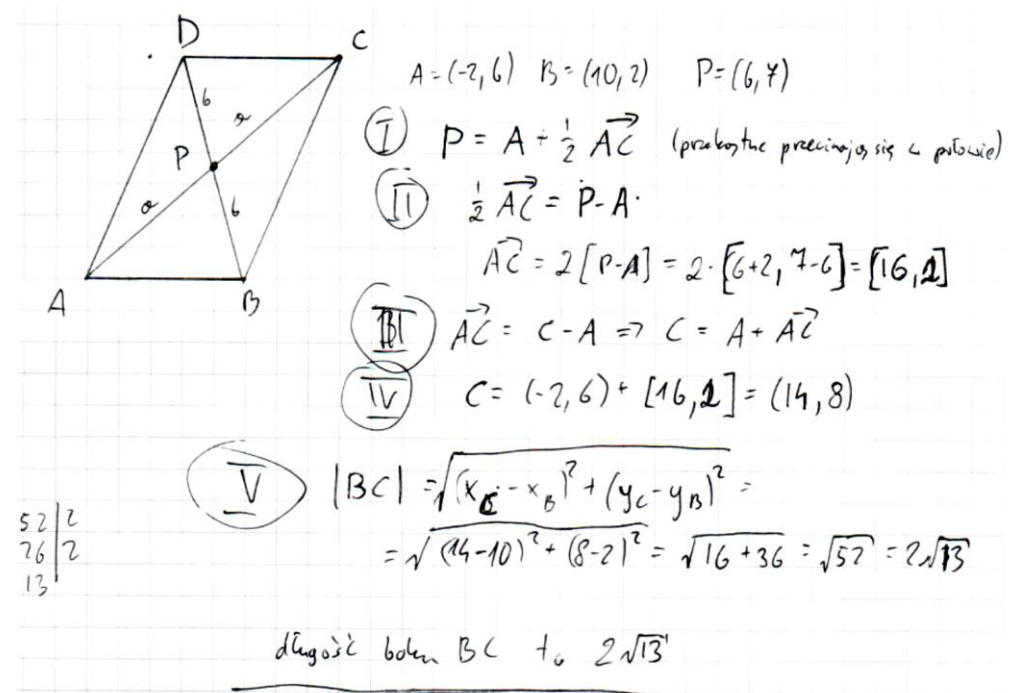 D C
6 a
P
a 6
A B
A = (-2, 6) B = (10, 2) P = (6, 7)
I P = A + 1/2 AC→ (przekątne przecinają się w połowie)
II 1/2 AC→ = P - A
AC→ = 2 [P-A] = 2·[6+2, 7-6] = [16, 2]
III AC→ = C - A ⇒ C = A + AC→
IV C = (-2, 6) + [16, 2] = (14, 8)
V |BC| = √((x_C - x_B)² + (y_C - y_B)²) =
= √((14-10)² + (8-2)²) = √(16 + 36) = √52 = 2√13
52 | 2
26 | 2
13
długość boku BC to 2√13